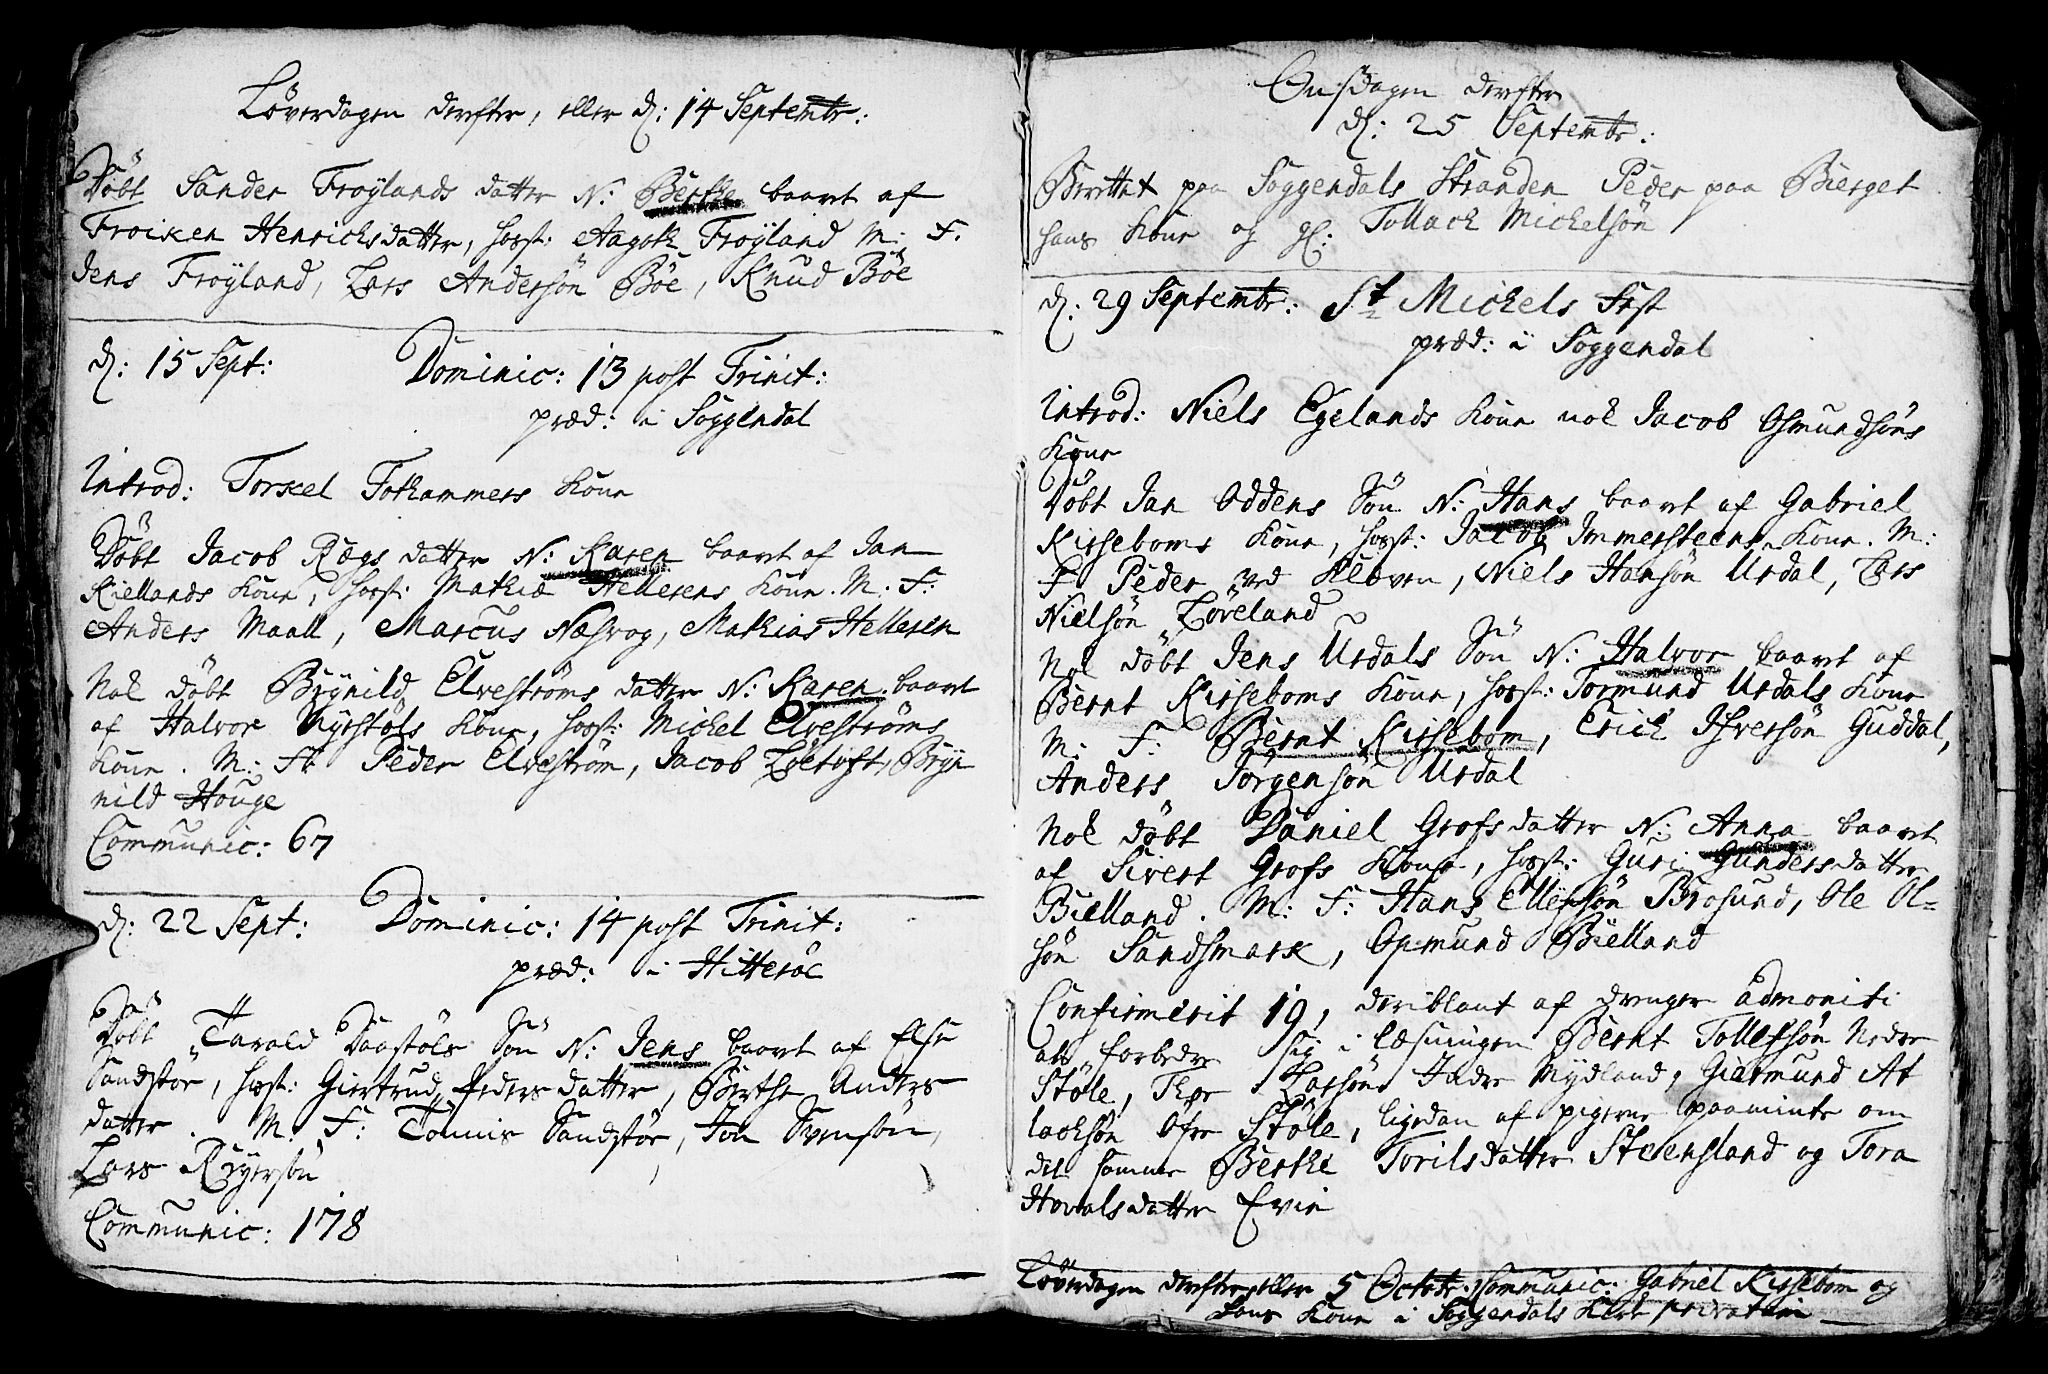 Löverdagen derefter, eller d: 14 Septembr:
Döbt Sander Fröylands datter N: Berthe baaret af
Froiken Henrichsdatter, hosst: Aagot Fröyland M: F.
Jens Fröyland, Lars Andersön Böe, Knud Böe
d: 15 Sept: Dominic: 13 post Trinit:
præd: i Soggendal
Introd: Torkel Fothammers Kone
Döbt Jacob Rægs datter N: Karen baaret af Jan
Kiellands Kone, hosst: Mathiæ Hellesens Kone. M: F:
Anders Maall, Marcus Næsvog, Mathias Hellesen
Nok döbt Brÿnild Elveströms datter N: Karen baaret
af Halvor Nÿrstöls Kone, hosst: Michel Elveströms
Kone. M: F: Peder Elveström, Jacob Löetoft, Brÿn
nild Houge
Communic: 67
d: 22 Sept: Dominic: 14 post Trinit:
præd: i Hitteröe
Döbt Tarald Daastöls Sön N: Jens baaret af Else
Sandstöe, hosst: Giertrud Peders datter, Birthe Anders
datter. M: F: Tönnis Sandstöe, Jon Svensön,
Lars Reÿersön
Communic: 178
Onsdagen derefter
d: 25 Septembr:
Berettet paa Soggendals Stranden Peder paa Bierget
hans Kone og gl: Tollack Michelsön
d: 29 Septembr: St Michels Fest
præd: i Soggendal
Introd: Niels Egelands Kone nok Jacob Osmundsöns
Kone
Döbt Jan Oddens Sön N: Hans baaret af Gabriel
Kirseboms Kone, hosst: Jacob Immersteens Kone. M:
F: Peder ved Kloven, Niels Hansön Urdal, Lars
Nielsön Löveland
Nok döbt Jens Urdals Sön N: Halvor baaret af
Bernt Kirseboms Kone, hosst: Tormund Urdals Kone
M: F: Bernt Kirsebom, Erick Ifversön Guddal,
Anders Jörgensön Urdal
Nok döbt Daniel Grofs datter N: Anna baaret
af Sivert Grofs Kone, hosst: Guri Gunders datter
Bielland. M: F: Hans Ellefsön Brosund, Ole Ol=
sön Sandsmark, Osmund Bielland
Confirmerit 19, deriblant af drenger admoniti
at forbedre sig i læsningen Bernt Tollefsön Nedre
Stöle, Thore Larsön Indre Nÿdland, Giermund At
lacksön Öfre Stöle, ligedan af pigerne paamint om
det samme Berthe Torilsdatter Steensland og Tora
Hovalsdatter Evie
Löverdagen derefter eller 5 Octobr: Communic: Gabriel Kirsebom og
hans Kone i Soggendals Kirke privatim